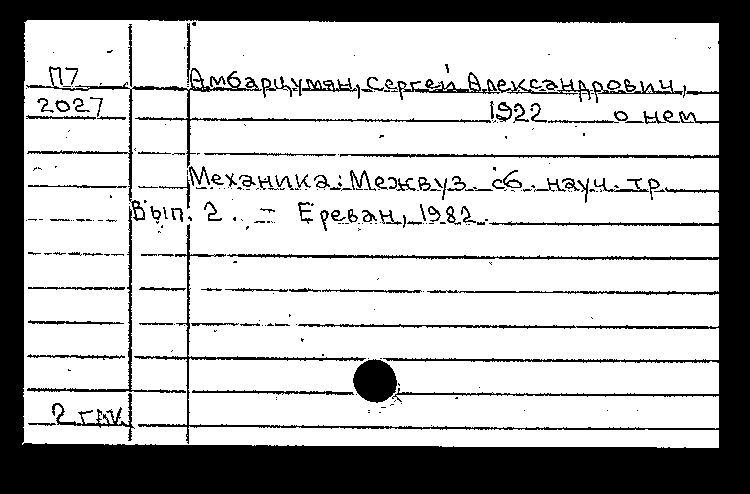 П7 Амбарцумян, Сергей Александрович,
2027 1922 о нем
Механика: Межвуз. сб. науч. тр.
Вып. 2. - Ереван, 1982.
2 гак